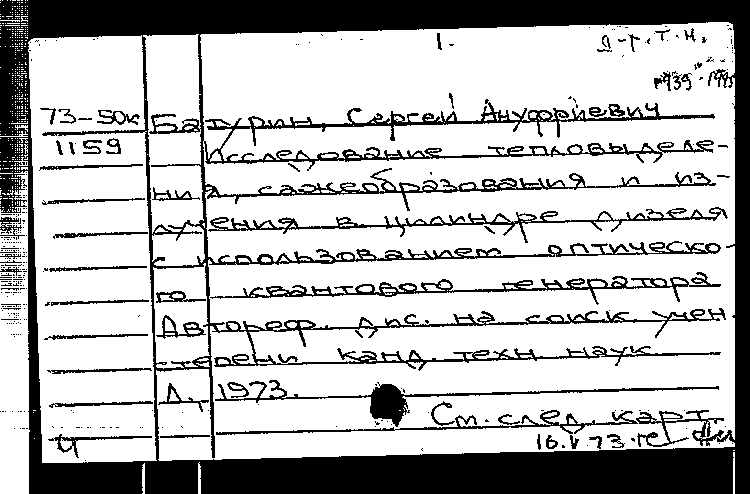 1.
д-р.т.н.
1939-1995
73-50к Батурин, Сергей Ануфриевич
1159 Исследование тепловыделе-
ния, сажеобразования и из-
лучения в цилиндре дизеля
с использованием оптическо-
го квантового генератора
Автореф. дис. на соиск. учен.
степени канд. техн. наук
Л., 1973.
См. след. карт.
ч 16.V 73